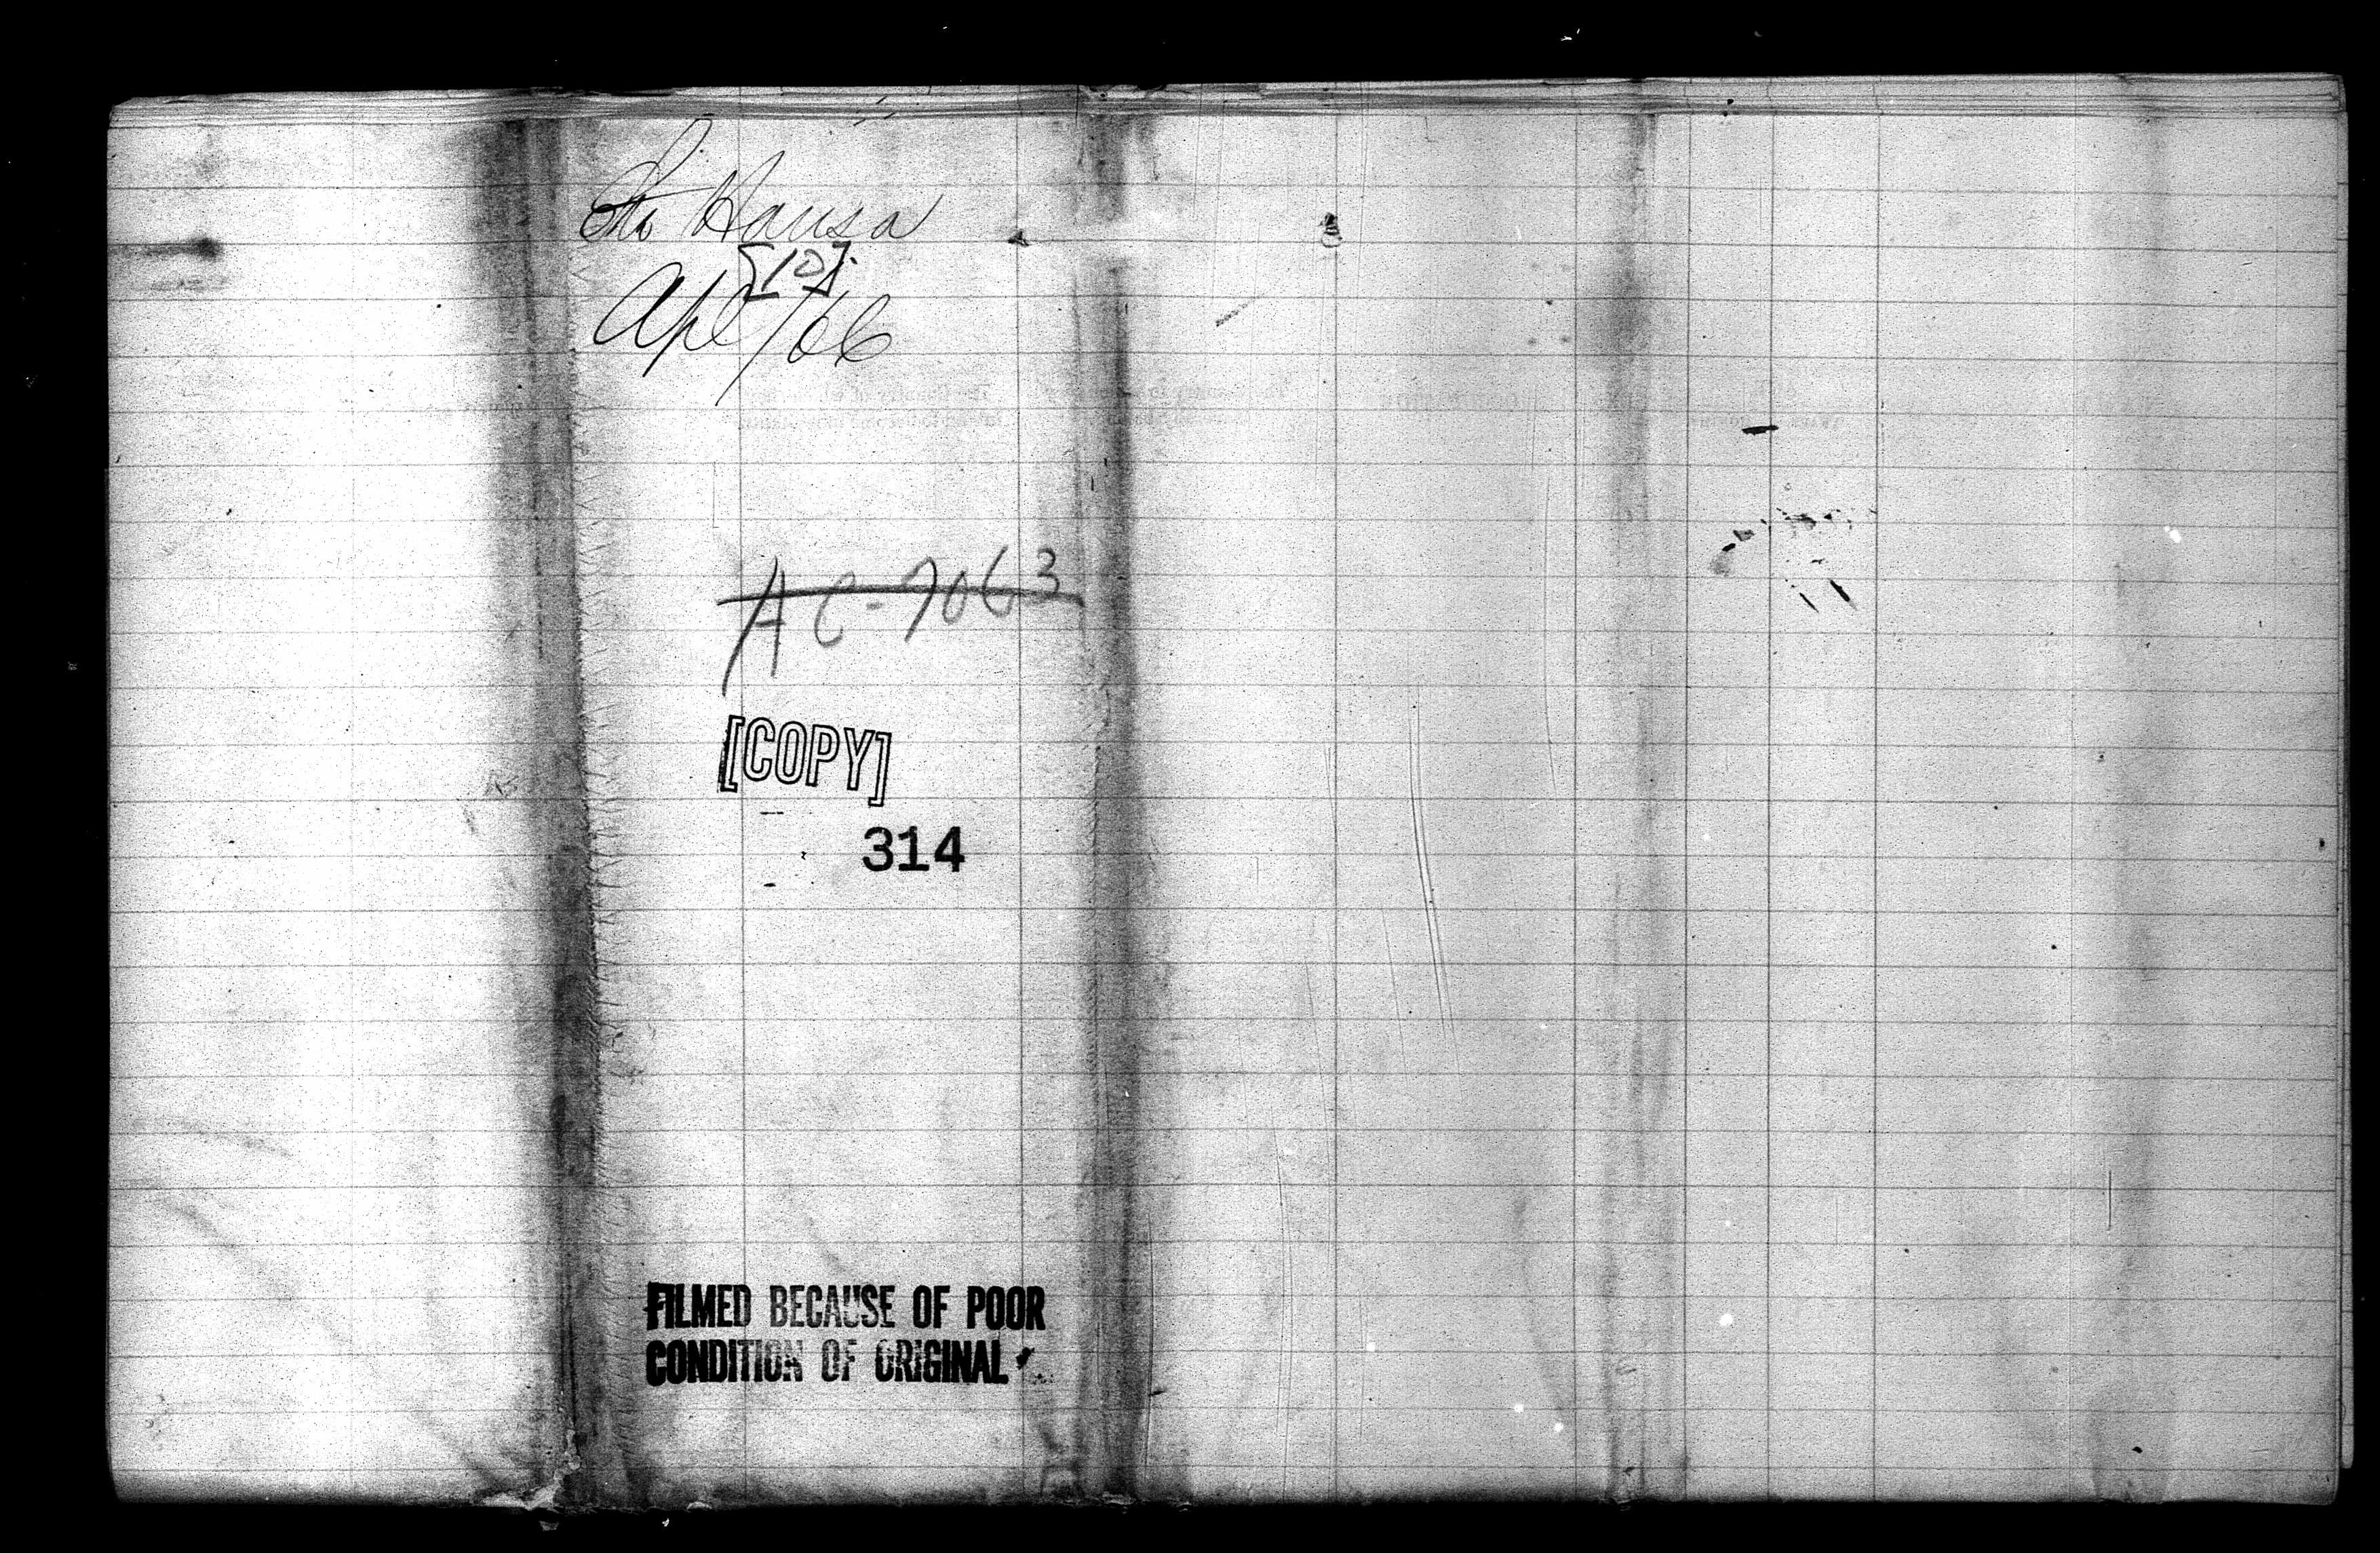 Str Hansa
[10]
Apl/66
AC-7063
[COPY]
314
FILMED BECAUSE OF POOR
CONDITION OF ORIGINAL